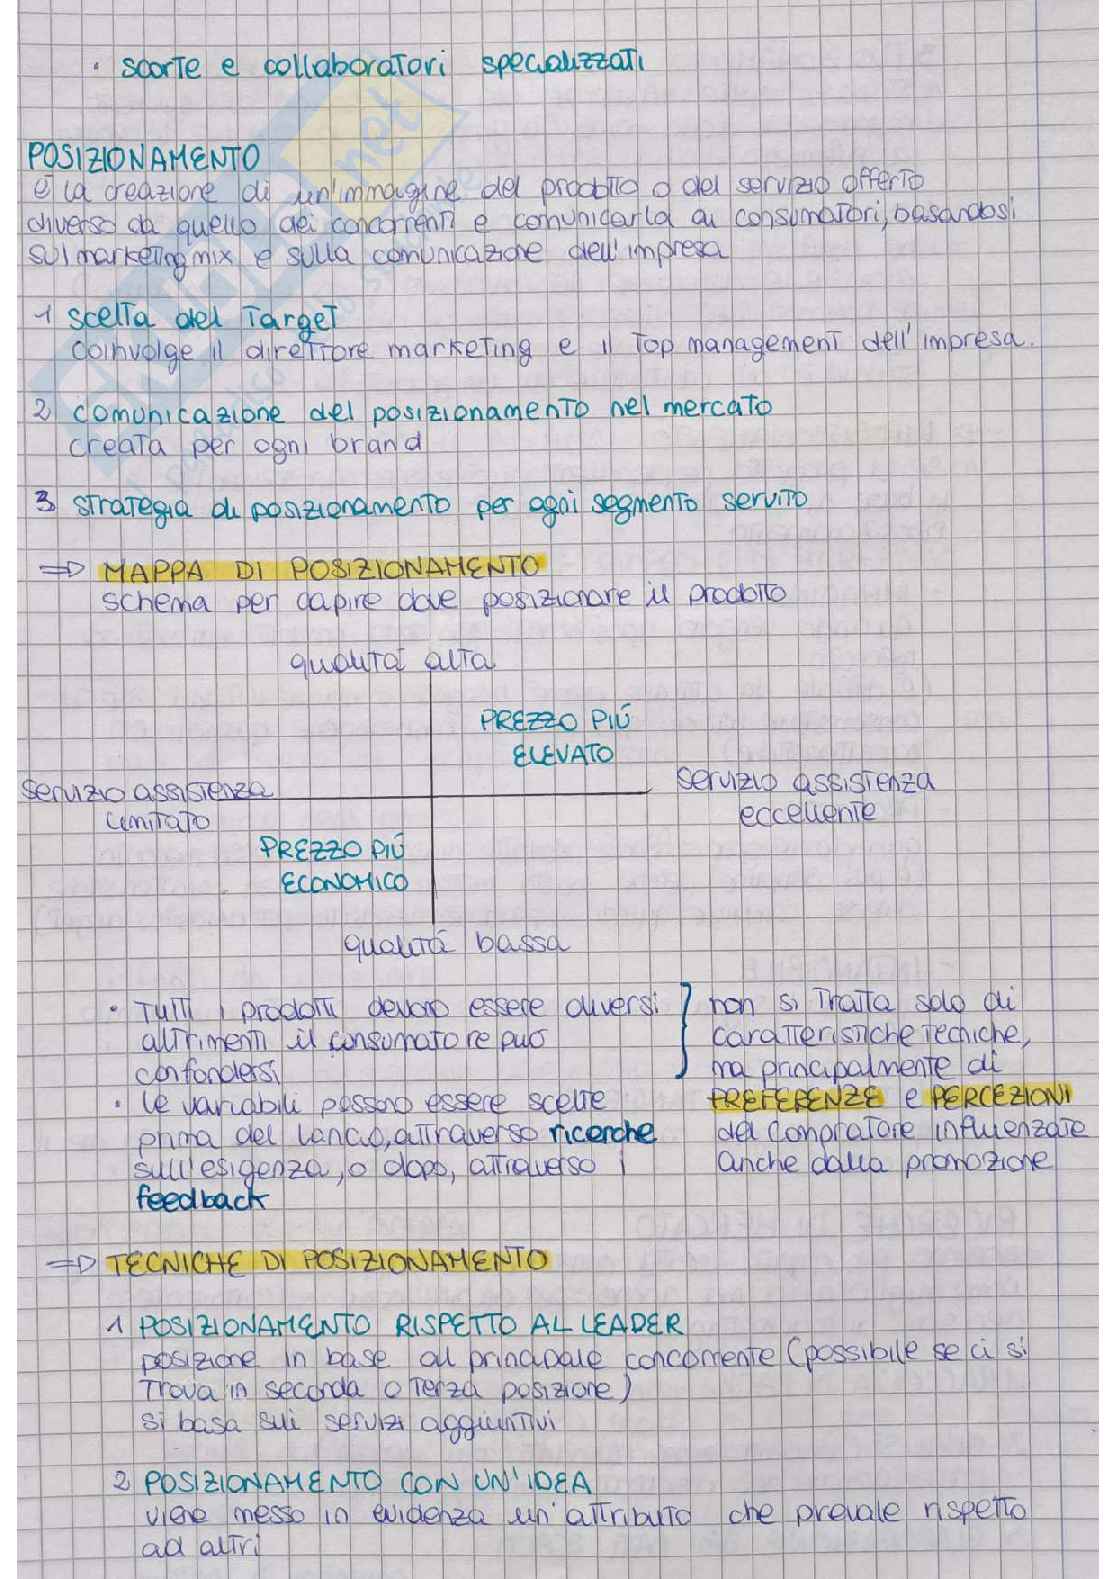 • scorte e collaboratori specializzati
POSIZIONAMENTO
è la creazione di un'immagine del prodotto o del servizio offerto
diverso da quello dei concorrenti e comunicarla ai consumatori, basandosi
sul marketing mix e sulla comunicazione dell'impresa
1 scelta del target
coinvolge il direttore marketing e il top management dell'impresa.
2 comunicazione del posizionamento nel mercato
creata per ogni brand
3 strategia di posizionamento per ogni segmento servito
=D MAPPA DI POSIZIONAMENTO
schema per capire dove posizionare il prodotto
qualità alta
PREZZO PIÚ
ELEVATO
servizio assistenza
limitato
servizio assistenza
eccellente
PREZZO PIÚ
ECONOMICO
qualità bassa
• tutti i prodotti devono essere diversi
altrimenti il consumatore può
confondersi
• le variabili possono essere scelte
prima del lancio, attraverso ricerche
sull'esigenza, o dopo, attraverso i
feedback
non si tratta solo di
caratteristiche tecniche,
ma principalmente di
PREFERENZE e PERCEZIONI
del compratore influenzate
anche dalla promozione
=D TECNICHE DI POSIZIONAMENTO
1 POSIZIONAMENTO RISPETTO AL LEADER
posizione in base al principale concorrente (possibile se ci si
trova in seconda o terza posizione)
si basa sui servizi aggiuntivi
2 POSIZIONAMENTO CON UN'IDEA
viene messo in evidenza un'attributo che prevale rispetto
ad altri